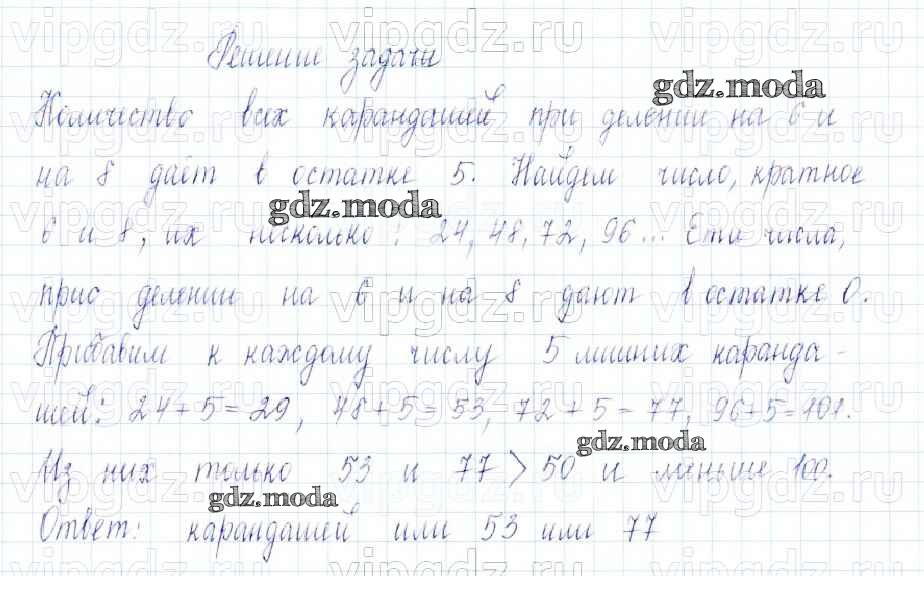 vipgdz.ru vipgdz.ru vipgdz.ru
Решение задачи
gdz.moda
Количество всех карандашей при делении на 6 и
на 8 даёт в остатке 5. Найдем число, кратное
gdz.moda
6 и 8, их несколько: 24, 48, 72, 96... Ети числа,
прис делении на 6 и на 8 дают в остатке 0.
Прибавим к каждому числу 5 лишних каранда-
шей: 24+5=29, 48+5=53, 72+5=77, 96+5=101.
gdz.moda
Из них только 53 и 77 > 50 и меньше 100.
gdz.moda
Ответ: карандашей или 53 или 77